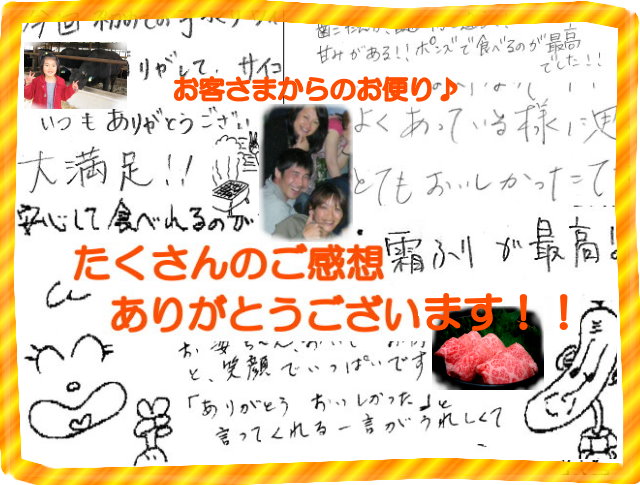 甘みがある!!ポンズで食べるのが最高
でした!!
りがして、サイコ
お客さまからのお便り♪
いつもありがとうござい
よくあっている様に思
大満足!!
とてもおいしかったです
安心して食べれるのが
霜ふりが最高!
たくさんのご感想
ありがとうございます!!
と、笑顔でいっぱいです
「ありがとう おいしかった」と
言ってくれる一言がうれしくて